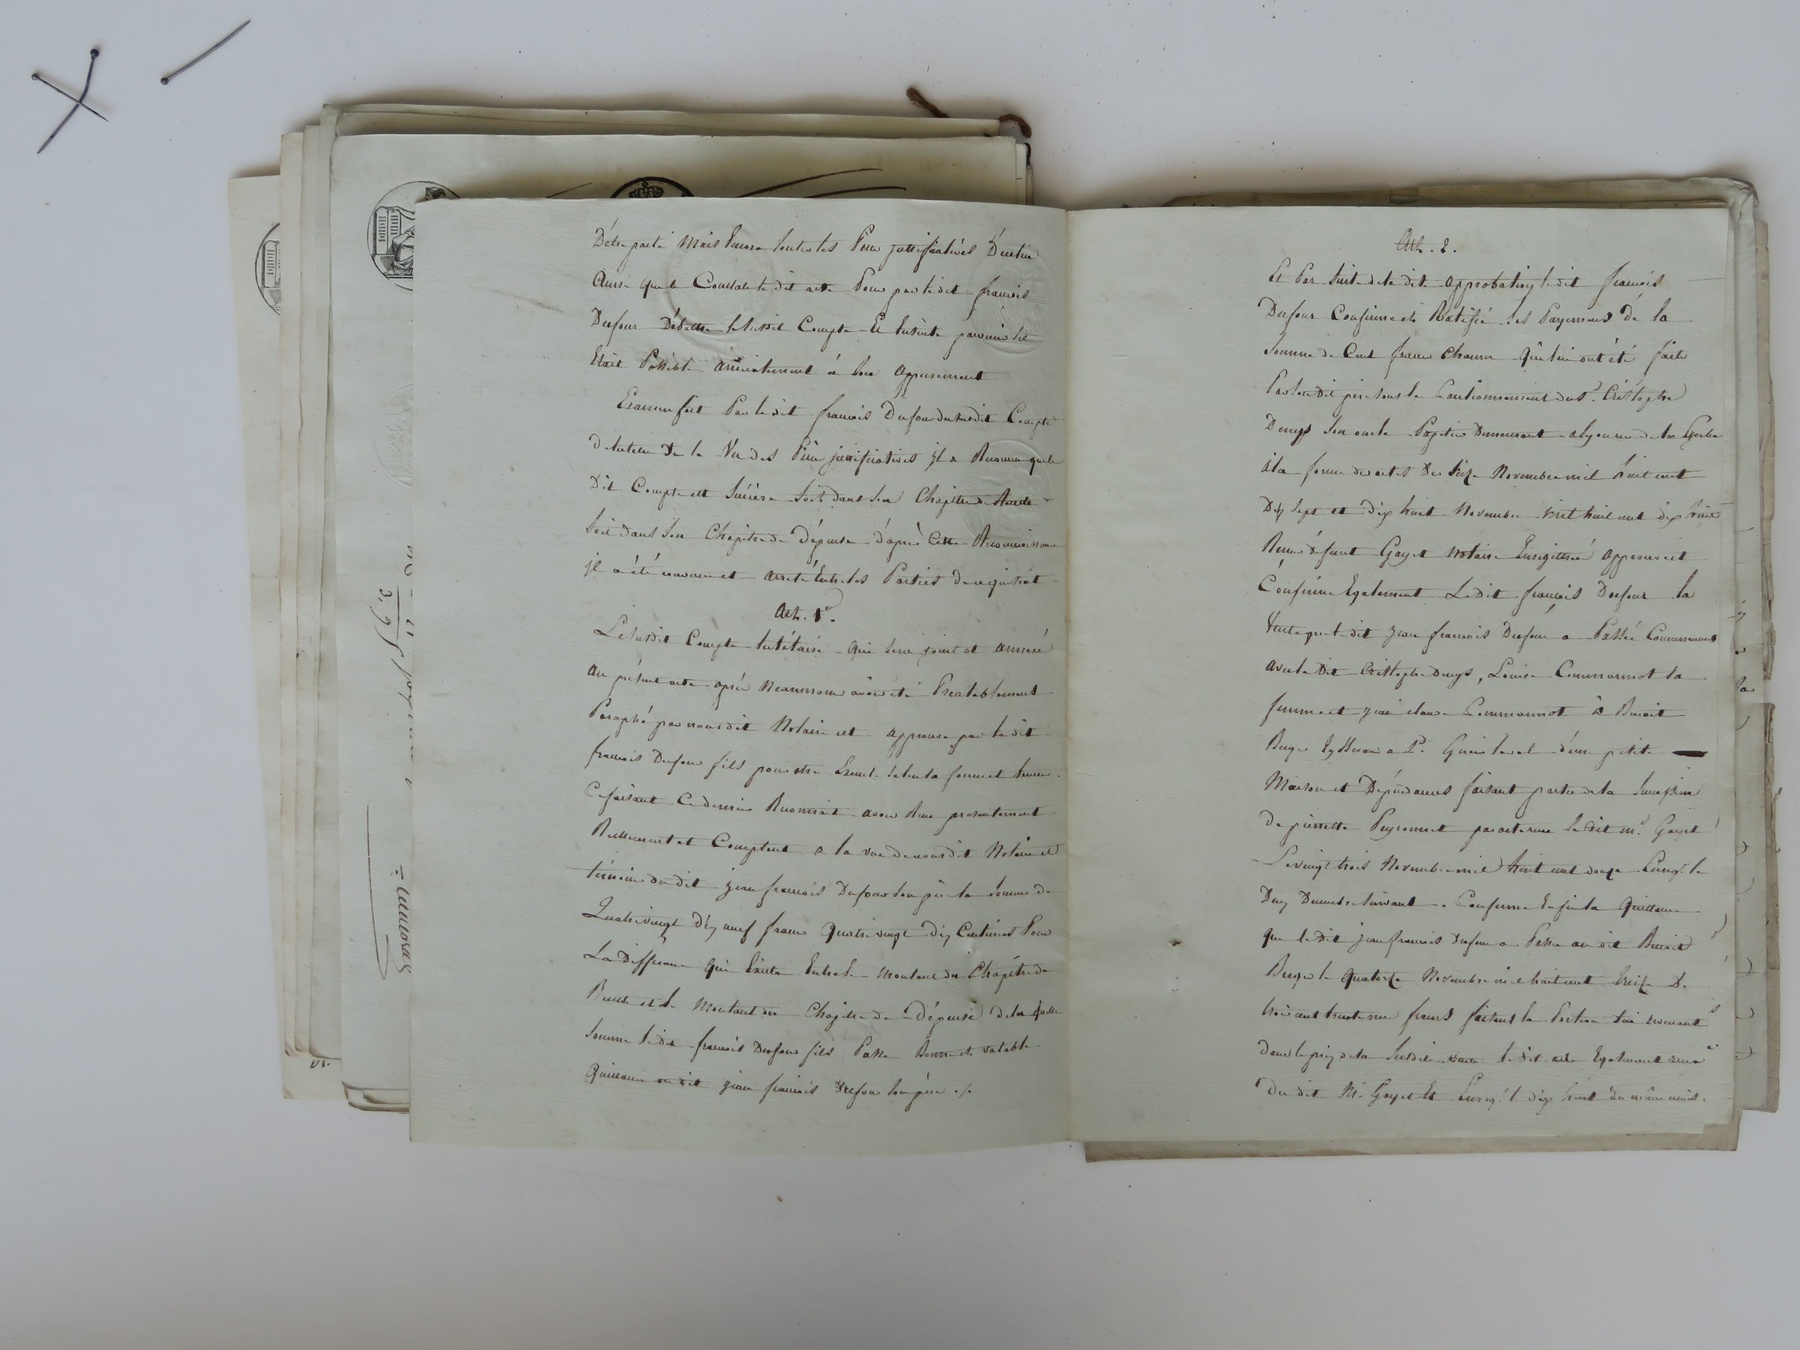 D'être parti Mais Encore toutes les Pièces justificatives D'icelui
Ainsi que le Constate le dit acte Pour par le dit françois
Dufour Débattre le susdit Compte Et Ensuite parvenir s'il
Etait Possible amicalement à son Appurement
Examen fait Par le dit françois Dufour du susdit Compte
de tutelle De la Vu des Pièces justificatives il a Reconnu que le
Dit Compte est Sincère Soit dans son Chapitre de Recette
Soit dans son Chapitre de dépense d'après cette Reconnoissance
il a été convenu et arrêté Entre les Parties de ce qui suit
Art. 1er.
Le susdit Compte tutélaire qui sera joint et annexé
au présent acte après Neanmoins avoir été Préalablement
Paraphé par nous dit Notaire est approuvé par le dit
françois Dufour fils pour être Exécuté selon sa forme et teneur
Ce faisant Ce dernier Reconnoit avoir Reçu presentement
Réellement et Comptant à la vue de nous dit Notaire et
témoins du dit jean françois Dufour son père la Somme de
Quatre vingt dix neuf francs Quatre vingt dix Centimes Pour
La Difference qui Existe Entre le Montant du Chapitre de
Recette et le Montant du Chapitre de dépense de la quelle
Somme le dit françois Dufour fils Passe Bonne et valable
Quittance au dit jean françois Dufour son père ./.
Art. 2.
Et Par Suite de la dite approbation le dit françois
Dufour Confirme et Ratifie les Payemens de la
Somme de Cent francs chacun qui lui ont été faits
Par le dit père sous le Cautionnement du Sr. Cristophe
Denys son oncle Papetier Demeurant
à la forme des actes Des Seize Novembre mil huit cent
Dix sept et dix huit Novembre mil huit cent dix huit
Reçus défunt Gayet Notaire Enregistrés approuve et
Confirme Egalement Le dit françois Dufour la
Vente que le dit jean françois Dufour a Passée Conjointement
avec le Dit Cristophe Denys, Louise Commarmot sa
femme et jean claude Commarmot à Benoit
d'une petite
Maison et Dépendances faisant partie de la Succession
de pierrette Peyronnet par acte reçu le dit me. Gayet
Le vingt trois Novembre mil huit cent douze Enreg. le
Deux Decembre Suivant. Confirme Enfin la Quittance
que le dit jean françois Dufour a Passée au dit Benoit
le quatorze Novembre mil huit cent treize De
trois cent trente francs faisant la Portion lui revenant
dans le prix de la Susdite vente le dit acte Egalement reçu
du dit Me. Gayet Et Enreg. le dix huit du même mois.